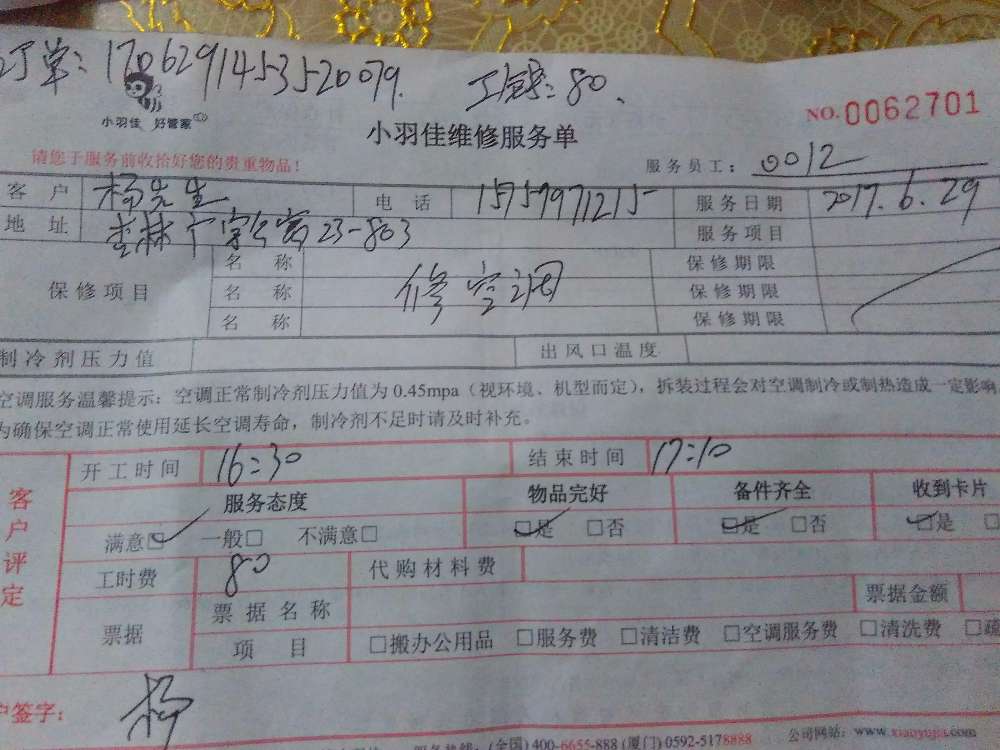 订单：1706291453520079. 工时费：80、
小羽佳 好管家
NO.0062701
小羽佳维修服务单
请您于服务前收拾好您的贵重物品！ 服务员工：0012
客户 杨先生 电话 15759971215 服务日期 2017.6.29
地址 杏林宁宝公寓23-803 服务项目
保修项目 名称 修空调 保修期限
名称 保修期限
名称 保修期限
制冷剂压力值 出风口温度
空调服务温馨提示：空调正常制冷剂压力值为0.45mpa（视环境、机型而定），拆装过程会对空调制冷或制热造成一定影响
为确保空调正常使用延长空调寿命，制冷剂不足时请及时补充。
客户评定 开工时间 16:30 结束时间 17:10
服务态度 物品完好 备件齐全 收到卡片
满意☑ 一般□ 不满意□ ☑是 □否 ☑是 □否 ☑是 □
工时费 80 代购材料费
票据 票据名称 票据金额
项目 □搬办公用品 □服务费 □清洁费 □空调服务费 □清洗费 □疏
户签字： 杨
服务热线：(全国)400-6655-888 (厦门)0592-5178888 公司网站：www.xiaoyujia.com